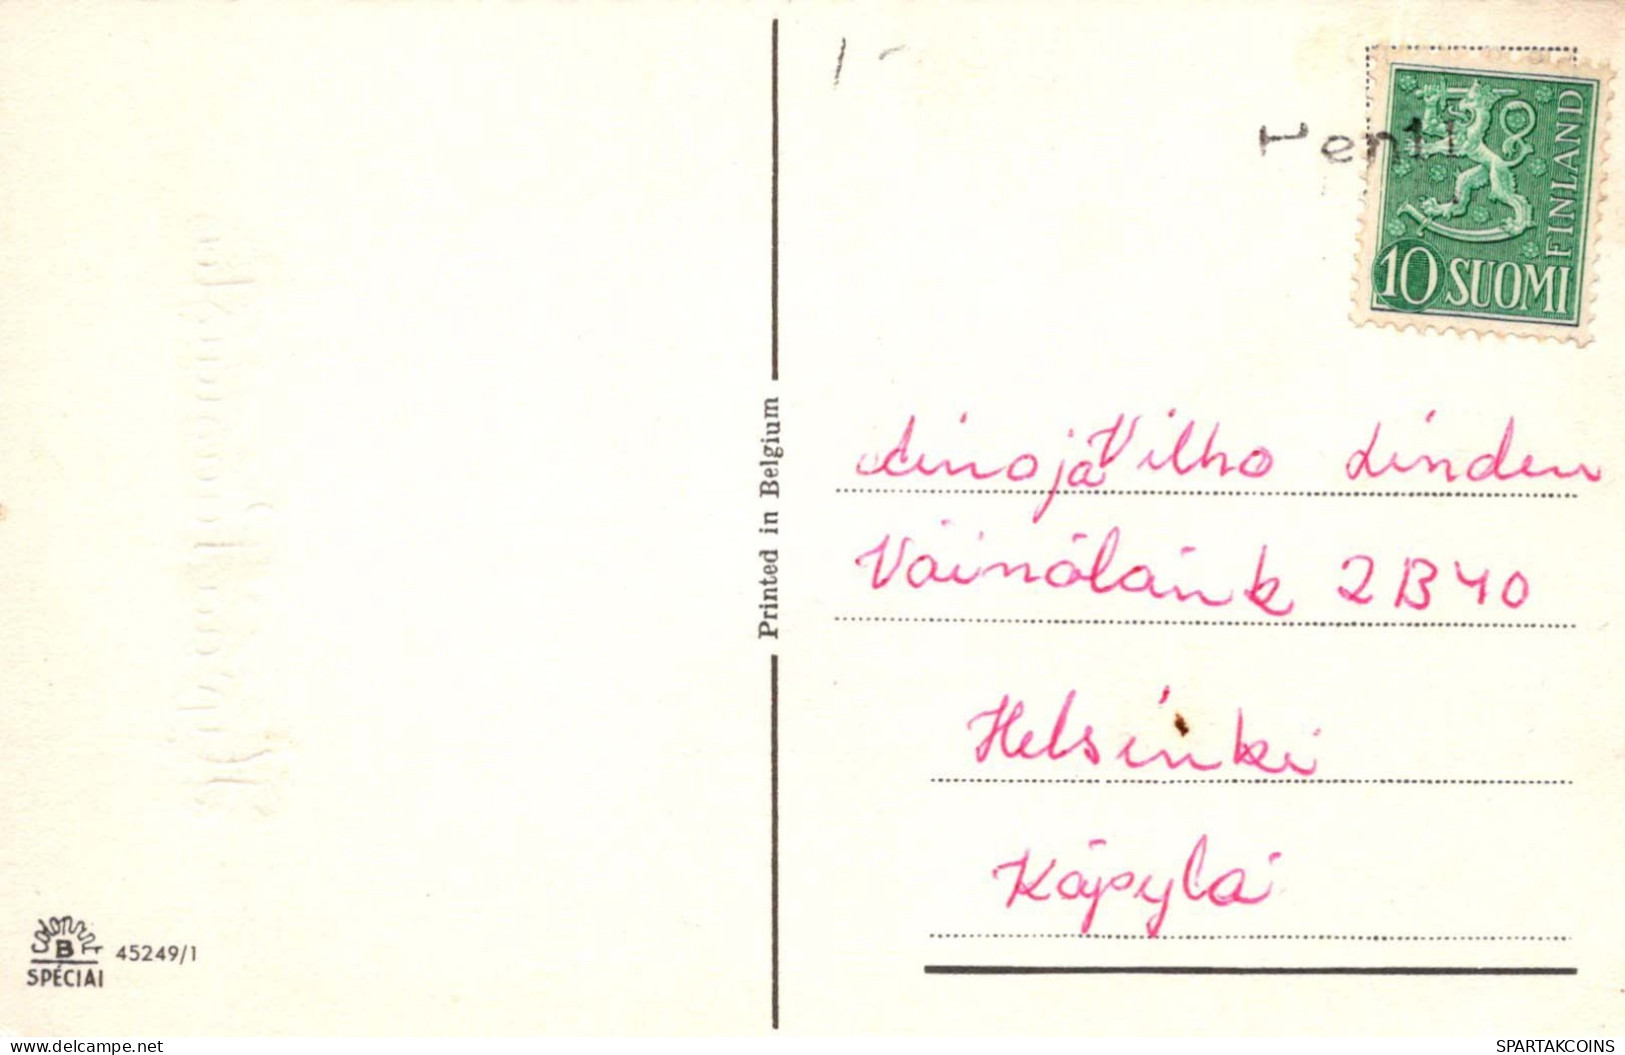 1 -
FINLAND
10 SUOMI
Printed in Belgium
Aino ja Vilho Linden
Väinöläink 2 B 40
Helsinki
Käpylä
B
SPÉCIAL
45249/1
www.delcampe.net
SPARTAKCOINS